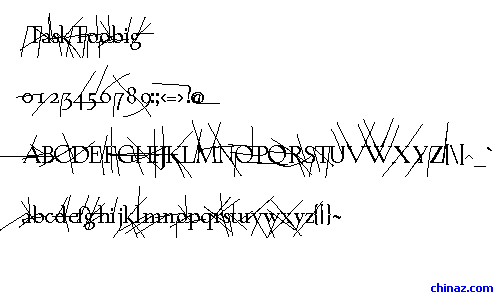 TaskToobig
0123456789:;<=>?@
ABCDEFGHIJKLMNOPQRSTUVWXYZ[\]^_`
abcdefghijklmnopqrstuvwxyz{|}~
chinaz.com